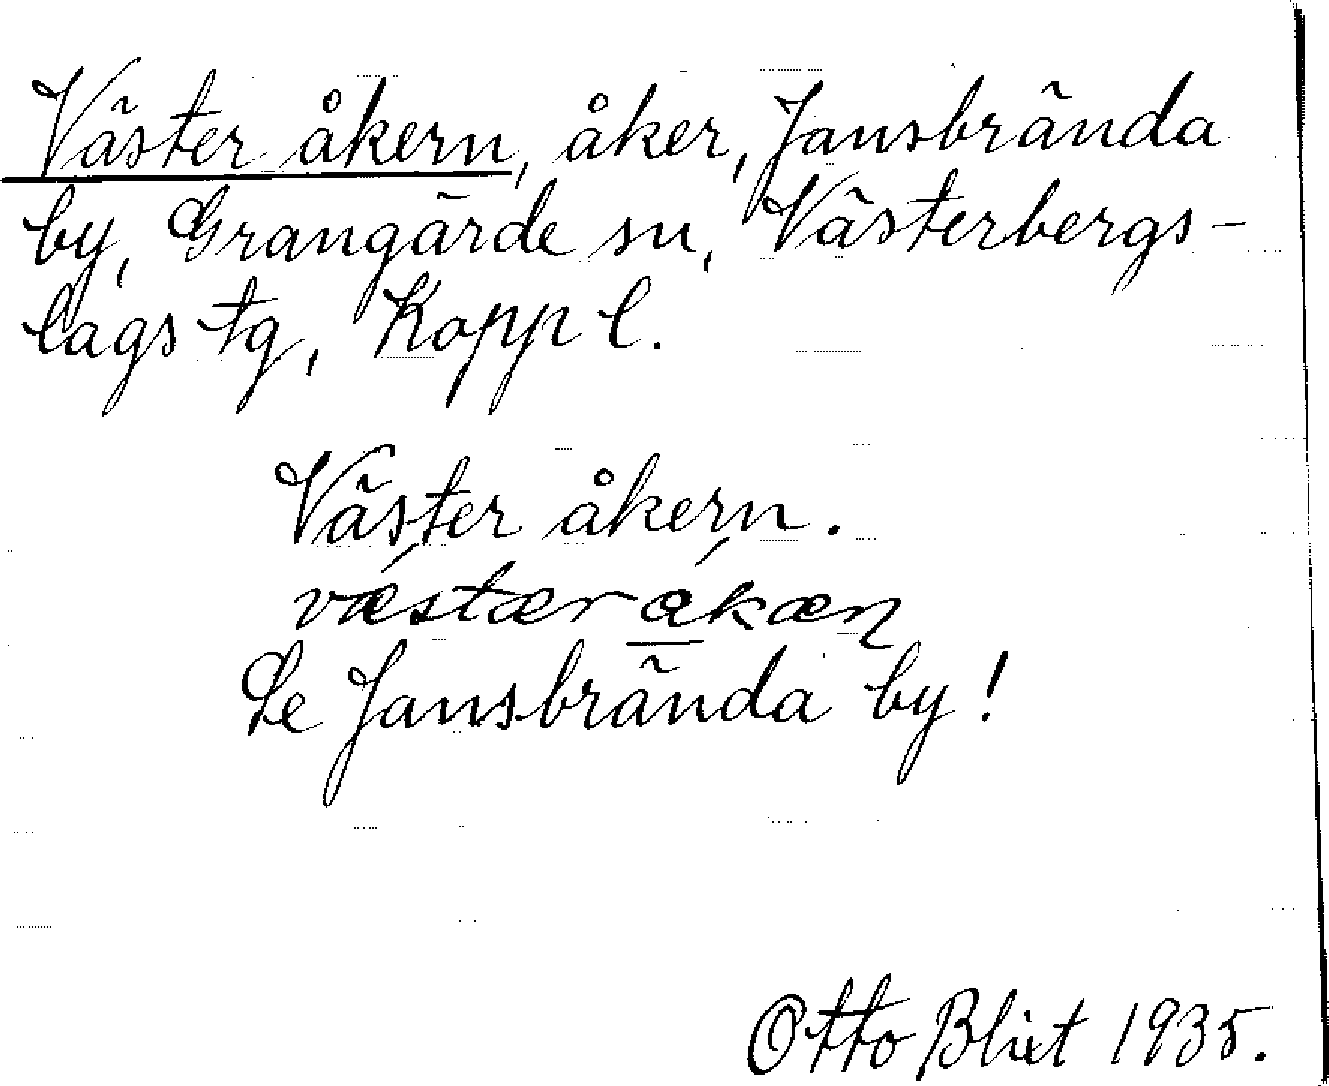 Väster åkern, åker, Jansbrända
by, Grangärde sn, Västerbergs-
lags tg, Kopp l.
Väster åkern.
vǽstær ák̀æn
Se Jansbrända by!
Otto Blixt 1935.